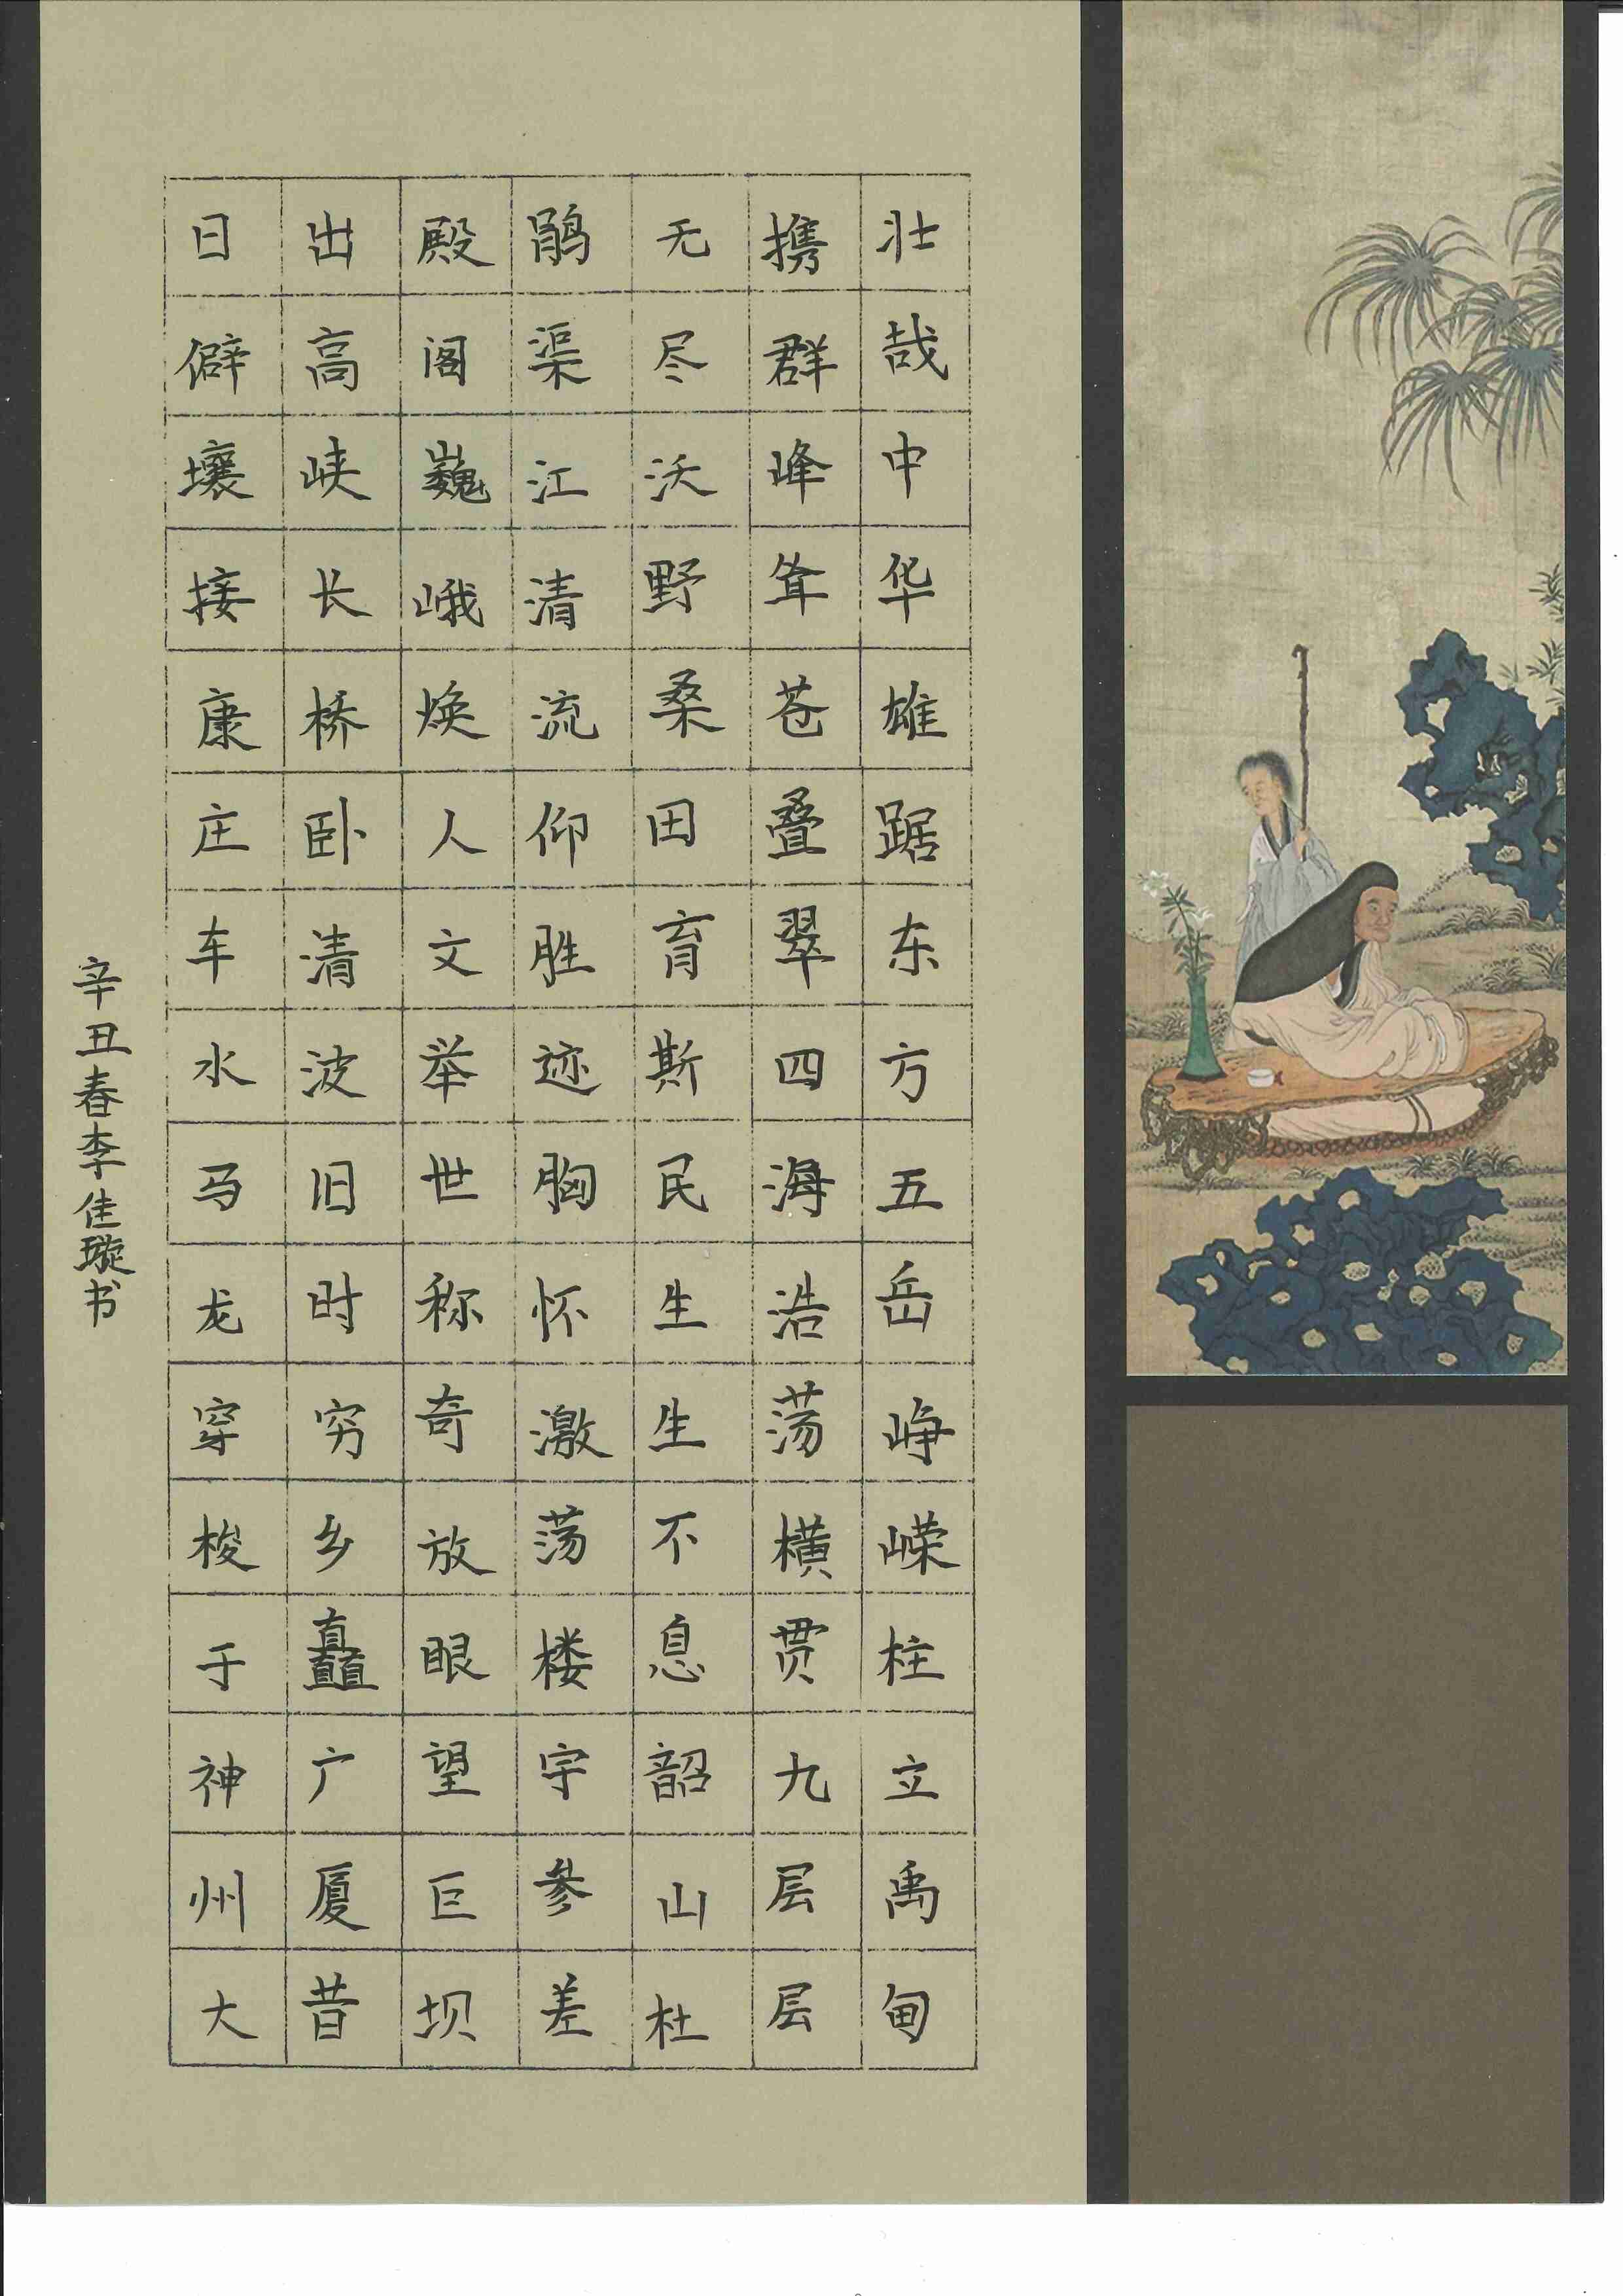 壮哉中华雄踞东方五岳峥嵘柱立禹甸
携群峰耸苍叠翠四海浩荡横贯九层层
无尽沃野桑田育斯民生生不息韶山杜
鹃渠江清流仰胜迹胸怀激荡楼宇参差
殿阁巍峨焕人文举世称奇放眼望巨坝
出高峡长桥卧清波旧时穷乡矗广厦昔
日僻壤接康庄车水马龙穿梭于神州大
辛丑春李佳璇书